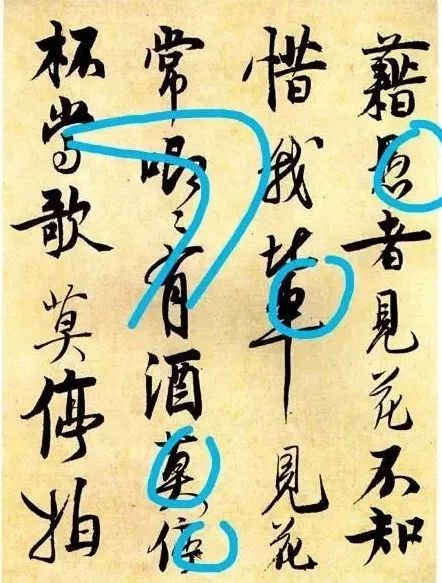 藉愚者見花不知
惜我輩見花
常恨々有酒莫停
杯當歌莫停拍